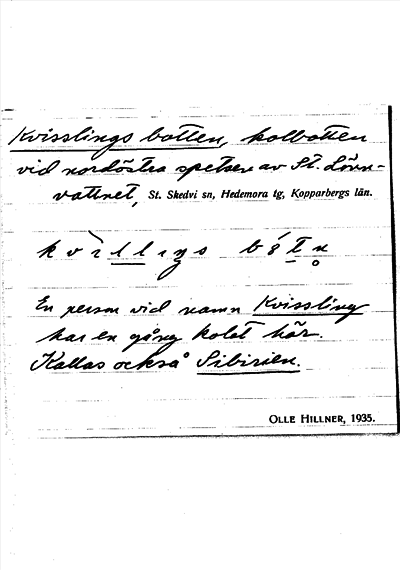 Kvisslings botten, kolbotten
vid nordöstra spetsen av St. Lönn-
vattnet, St. Skedvi sn, Hedemora tg, Kopparbergs län.
En person vid namn Kvissling
har en gång kolat här.
Kallas också Sibirien.
OLLE HILLNER, 1935.